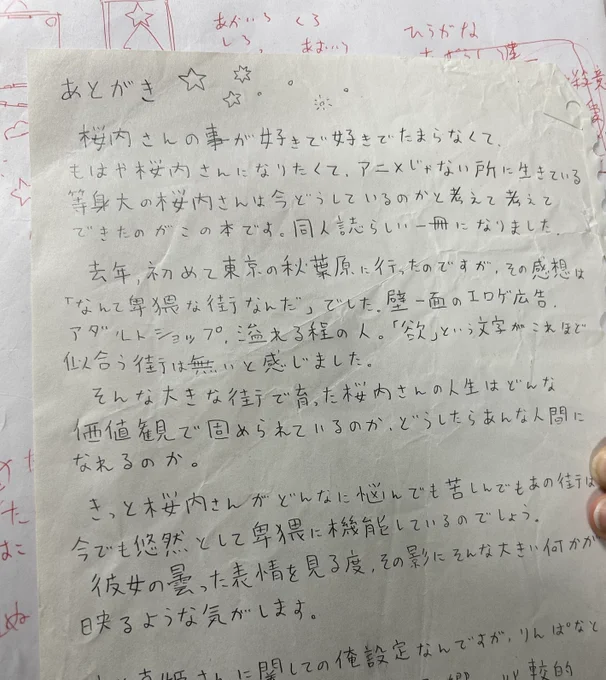 あかいろ くろ
しろ
ひらがな
あとがき
桜内さんの事が好きで好きでたまらなくて、
もはや桜内さんになりたくて、アニメじゃない所に生きている
等身大の桜内さんは今どうしているのかと考えて考えて
できたのがこの本です。同人誌らしい一冊になりました。
去年、初めて東京の秋葉原に行ったのですが、その感想は
「なんて卑猥な街なんだ」でした。壁一面のエロゲ広告、
アダルトショップ、溢れる程の人。「欲」という文字がこれほど
似合う街は無いと感じました。
そんな大きな街で育った桜内さんの人生はどんな
価値観で固められているのか、どうしたらあんな人間に
なれるのか。
きっと桜内さんがどんなに悩んでも苦しんでもあの街は
今でも悠然として卑猥に機能しているのでしょう。
彼女の曇った表情を見る度、その影にそんな大きい何かが
映るような気がします。
さんに関しての俺設定なんですが、りんぱなと
較的